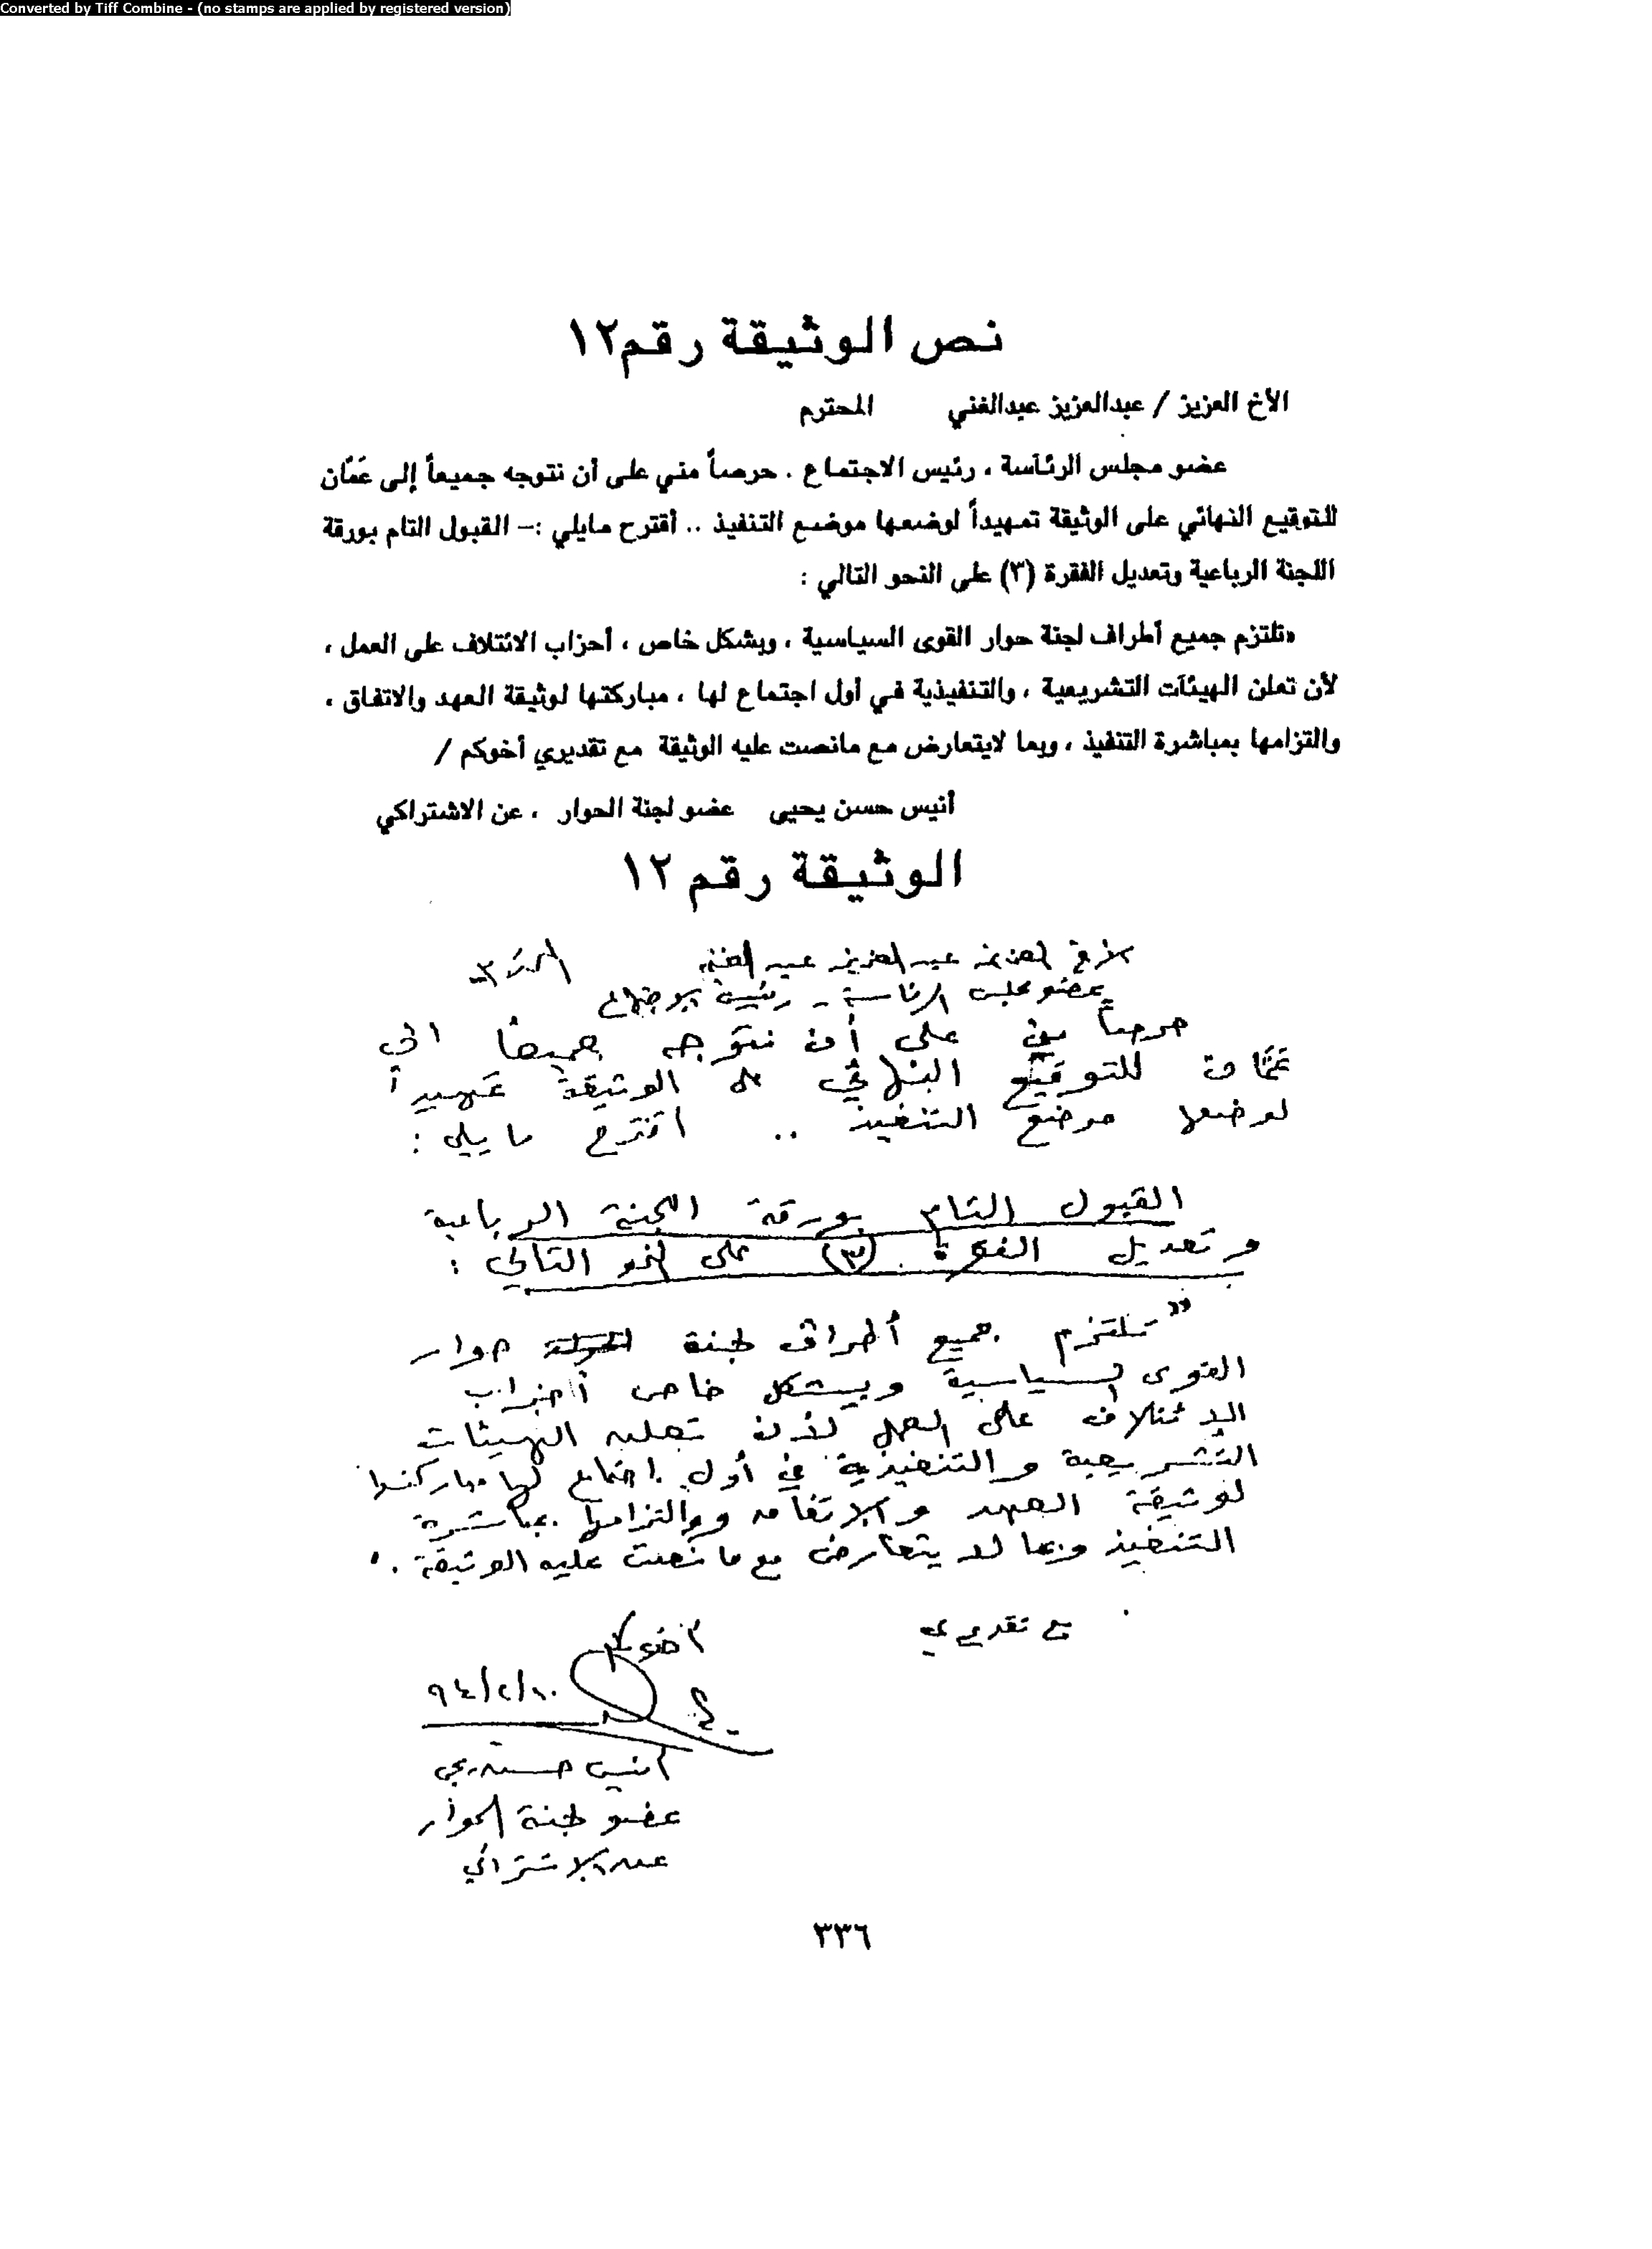 Converted by Tiff Combine - (no stamps are applied by registered version)
نص الوثيقة رقم١٢
الأخ العزيز / عبدالعزيز عبدالغني المحترم
عضو مجلس الرئاسة ، رئيس الاجتماع . حرصاً مني على أن نتوجه جميعاً إلى عَمّان
للتوقيع النهائي على الوثيقة تمهيداً لوضعها موضع التنفيذ .. أقترح مايلي :– القبول التام بورقة
اللجنة الرباعية وتعديل الفقرة (٣) على النحو التالي :
«تلتزم جميع أطراف لجنة حوار القوى السياسية ، وبشكل خاص ، أحزاب الائتلاف على العمل ،
لأن تعلن الهيئآت التشريعية ، والتنفيذية في أول اجتماع لها ، مباركتها لوثيقة العهد والاتفاق ،
والتزامها بمباشرة التنفيذ ، وبما لايتعارض مع مانصت عليه الوثيقة مع تقديري أخوكم /
أنيس حسن يحيى عضو لجنة الحوار ، عن الاشتراكي
الوثيقة رقم ١٢
الأخ العزيز عبد العزيز عبد الغني المحترم
عضو مجلس الرئاسة - رئيس الاجتماع
حرصاً مني على أن نتوجه جميعاً الى
عَمَّان للتوقيع النهائي على الوثيقة تمهيداً
لوضعها موضع التنفيذ .. اقترح ما يلي :
القبول التام بورقة اللجنة الرباعية
وتعديل الفقرة (٣) على النحو التالي :
"تلتزم جميع أطراف لجنة حوار
القوى السياسية وبشكل خاص أحزاب
الائتلاف على العمل لأن تعلن الهيئات
التشريعية والتنفيذية في أول اجتماع لها مباركتها
لوثيقة العهد والاتفاق والتزامها بمباشرة
التنفيذ وبما لا يتعارض مع ما نصت عليه الوثيقة ."
مع تقديري
أخوكم
٩٤/٢/١٠
أنيس حسن يحيى
عضو لجنة الحوار
عن الاشتراكي
٣٣٦